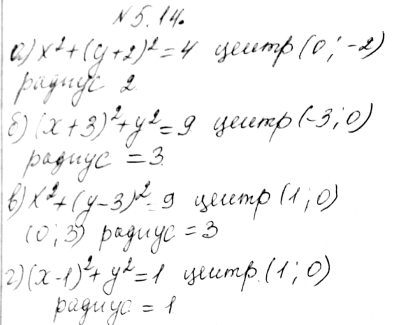 №5.14.
а) x²+(y+2)²=4 центр (0; -2)
радиус 2
б) (x+3)²+y²=9 центр (-3; 0)
радиус = 3
в) x²+(y-3)²=9 центр (1; 0)
(0; 3) радиус = 3
г) (x-1)²+y²=1 центр. (1; 0)
радиус = 1